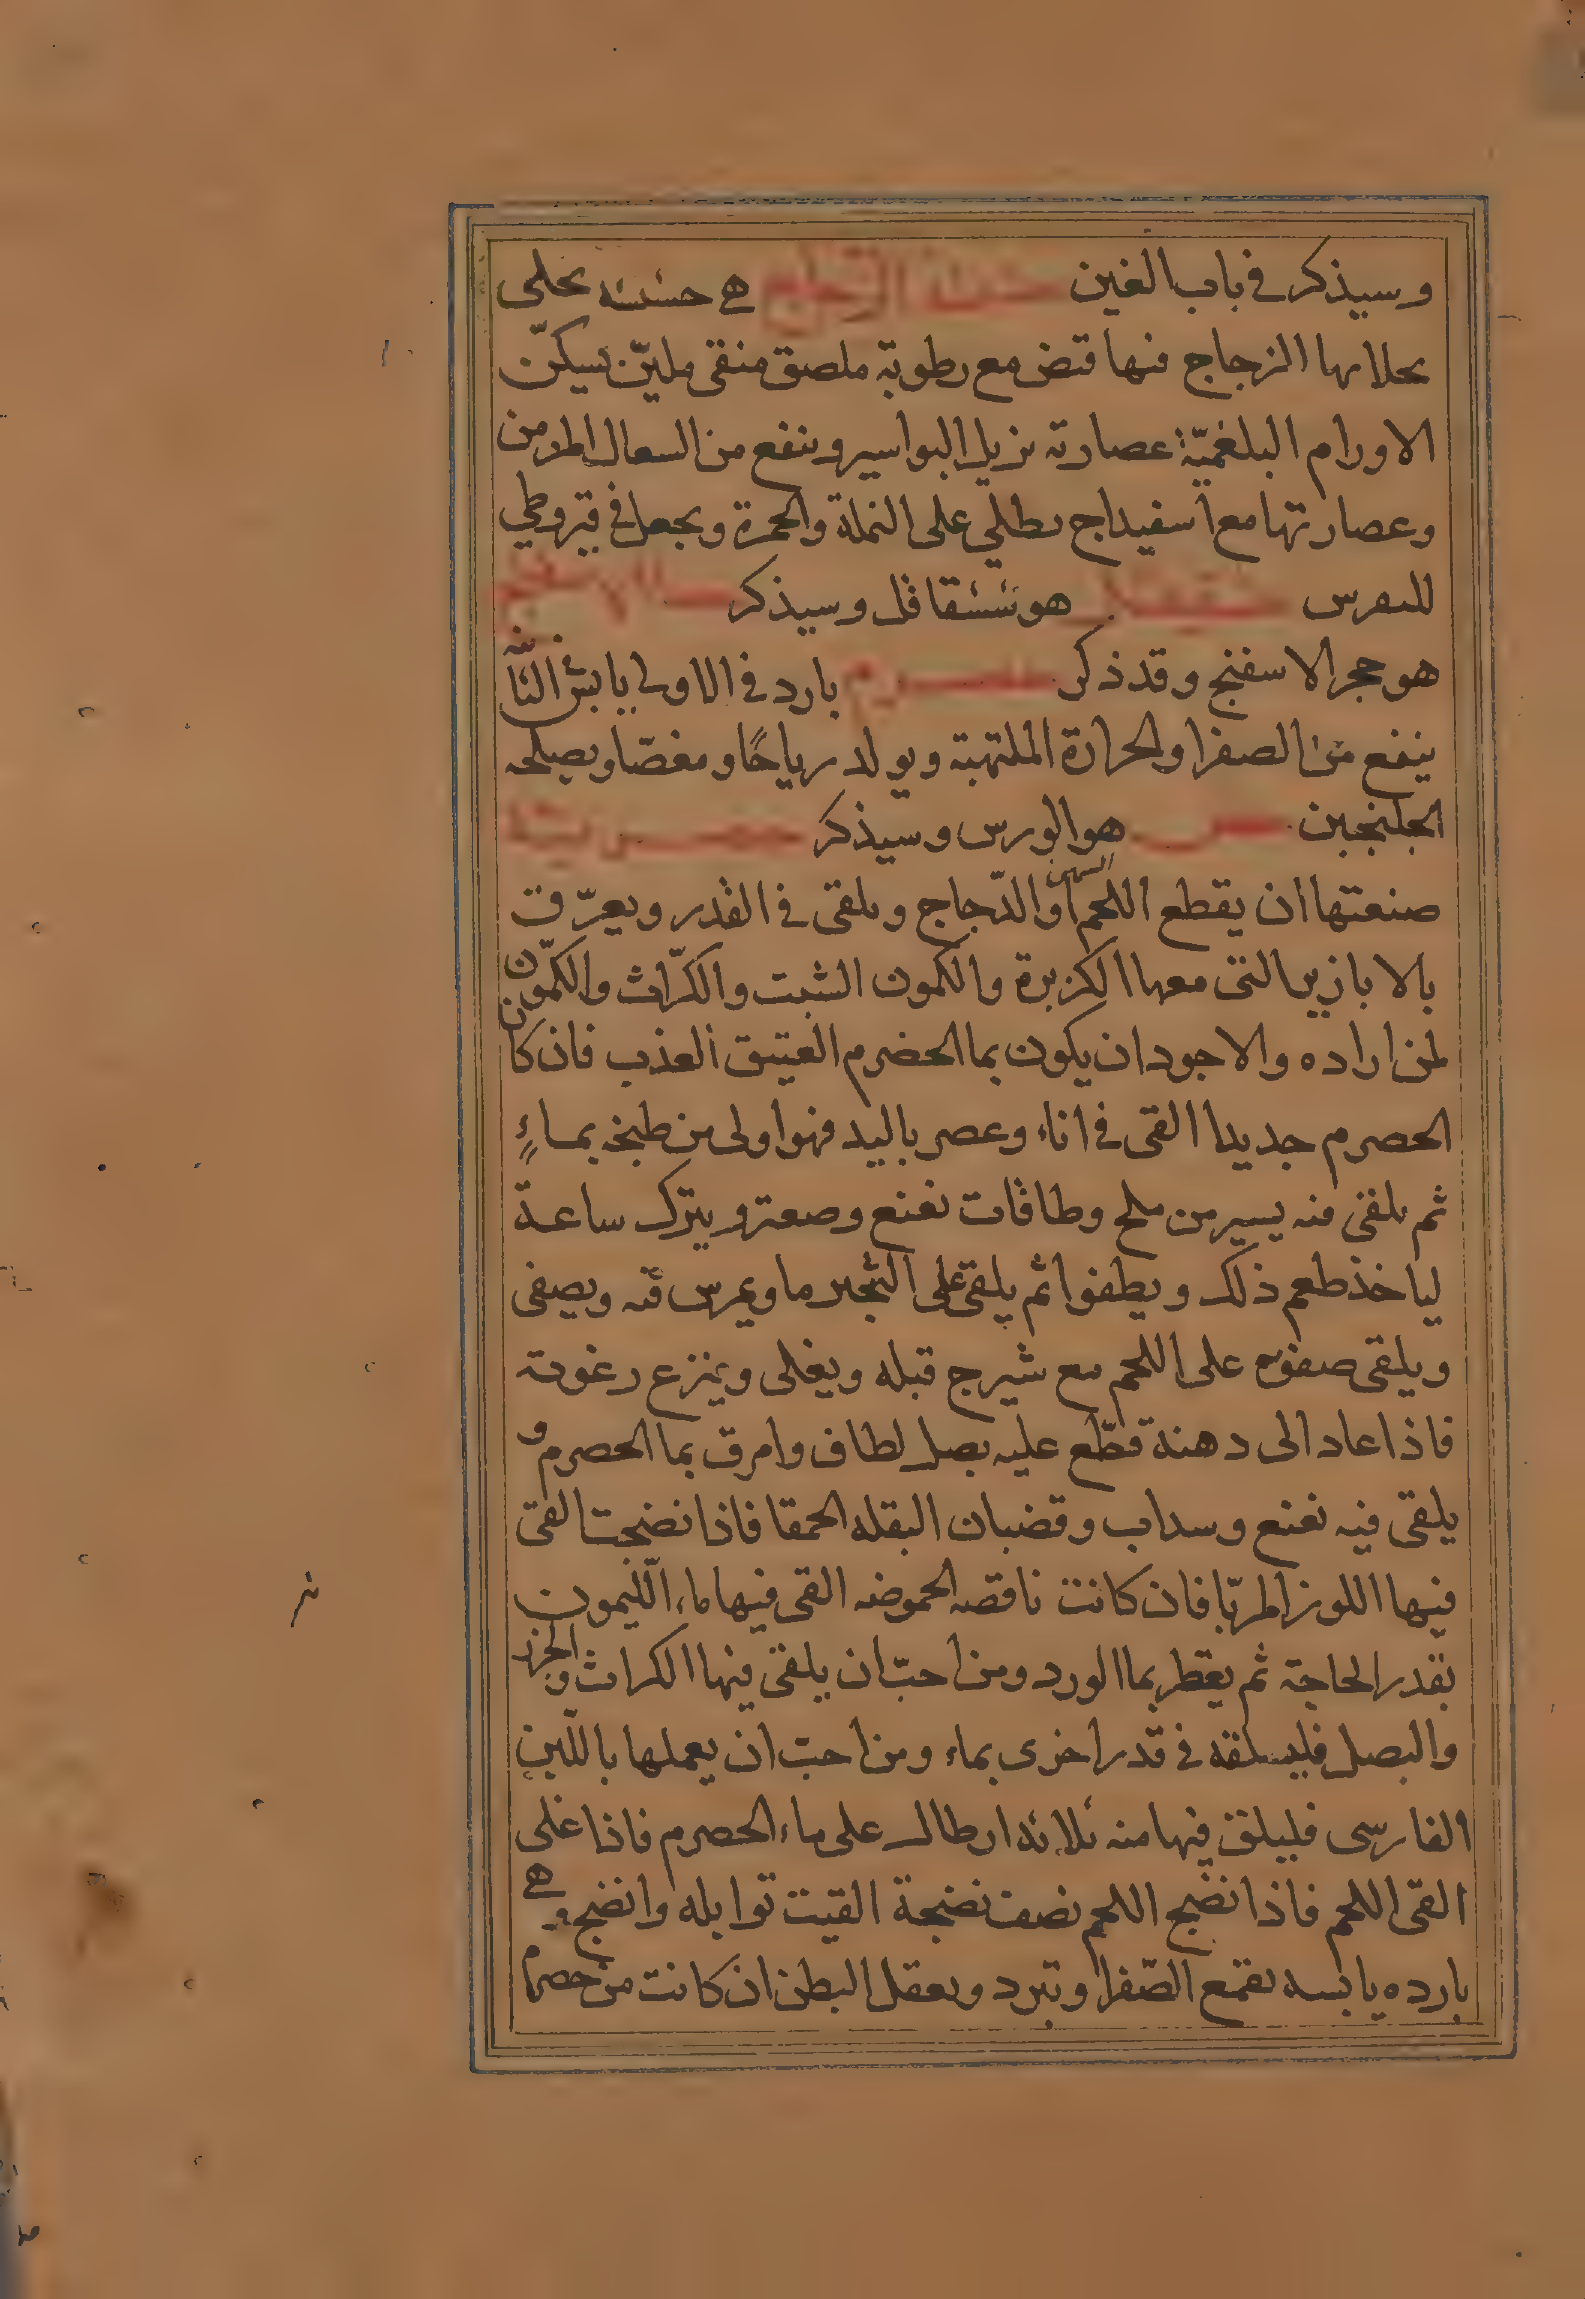 وسيذكر في باب الغين حشيشة الزجاج هي حشيشه يجلى
بجلابها الزجاج فيها قبض مع رطوبة ملصق منقى مليّن يسكّن
الاورام البلغميّة عصارته يزيل البواسير وينفع من السعال المزمن
وعصارتها مع اسفيداج يطلى على النملة والحمرة ويجعل في قيروطي
للنقرس هو ششقاقل وسيذكر
هو حجر الاسفنج وقد ذكر حصرم بارد في الاولى يابس في الثانية
ينفع من الصفرا والحرارة الملتهبة ويولد رياحًا ومغصّا ويصلحه
الجلنجبين حص هو الورس وسيذكر حصرمية
صنعتها ان يقطع اللحم السمين او الدّجاج ويلقى في القدر ويعرّق
بالابازير التى معها الكزبرة والكمون الشبت والكرّاث والكمّون
لمن اراده والاجود ان يكون بما الحضرم العتيق العذب فان كان
الحصرم جديدا القى في اناء وعصر باليد فهو اولى من طبخه بماءٍ
ثم يلقى منه يسير من ملح وطاقات نعنع وصعتر ويترك ساعة
لياخذ طعم ذلك ويطفوا ثم يلقى على الثجير ما ويمرس فيه ويصفى
ويلقى صفوه على اللحم مع شيرج قبله ويغلى وينزع رغوته
فاذا عاد الى دهنة قطّع عليه بصل لطاف وامرق بما الحصرم و
يلقى فيه نعنع وسداب وقضبان البقله الحمقا فاذا نضجت القى
فيها اللوز المربّا فان كانت ناقصه الحموضه القى فيها ماء الليمون
بقدر الحاجة ثم يقطر بما الورد ومن احبّ ان يلقى فيها الكراث والجزر
والبصل فليسلقه في قدر اخرى بماء ومن احبّ ان يعملها باللبن
الفارسى فليلق فيها منه ثلاثه ارطال على ماء الحصرم فاذا غلى
القى اللحم فاذا نضج اللحم نصف نضجة القيت توابله وانضج وهي
بارده يابسه تقمع الصّفرا وتبرد وتعقل البطن ان كانت من